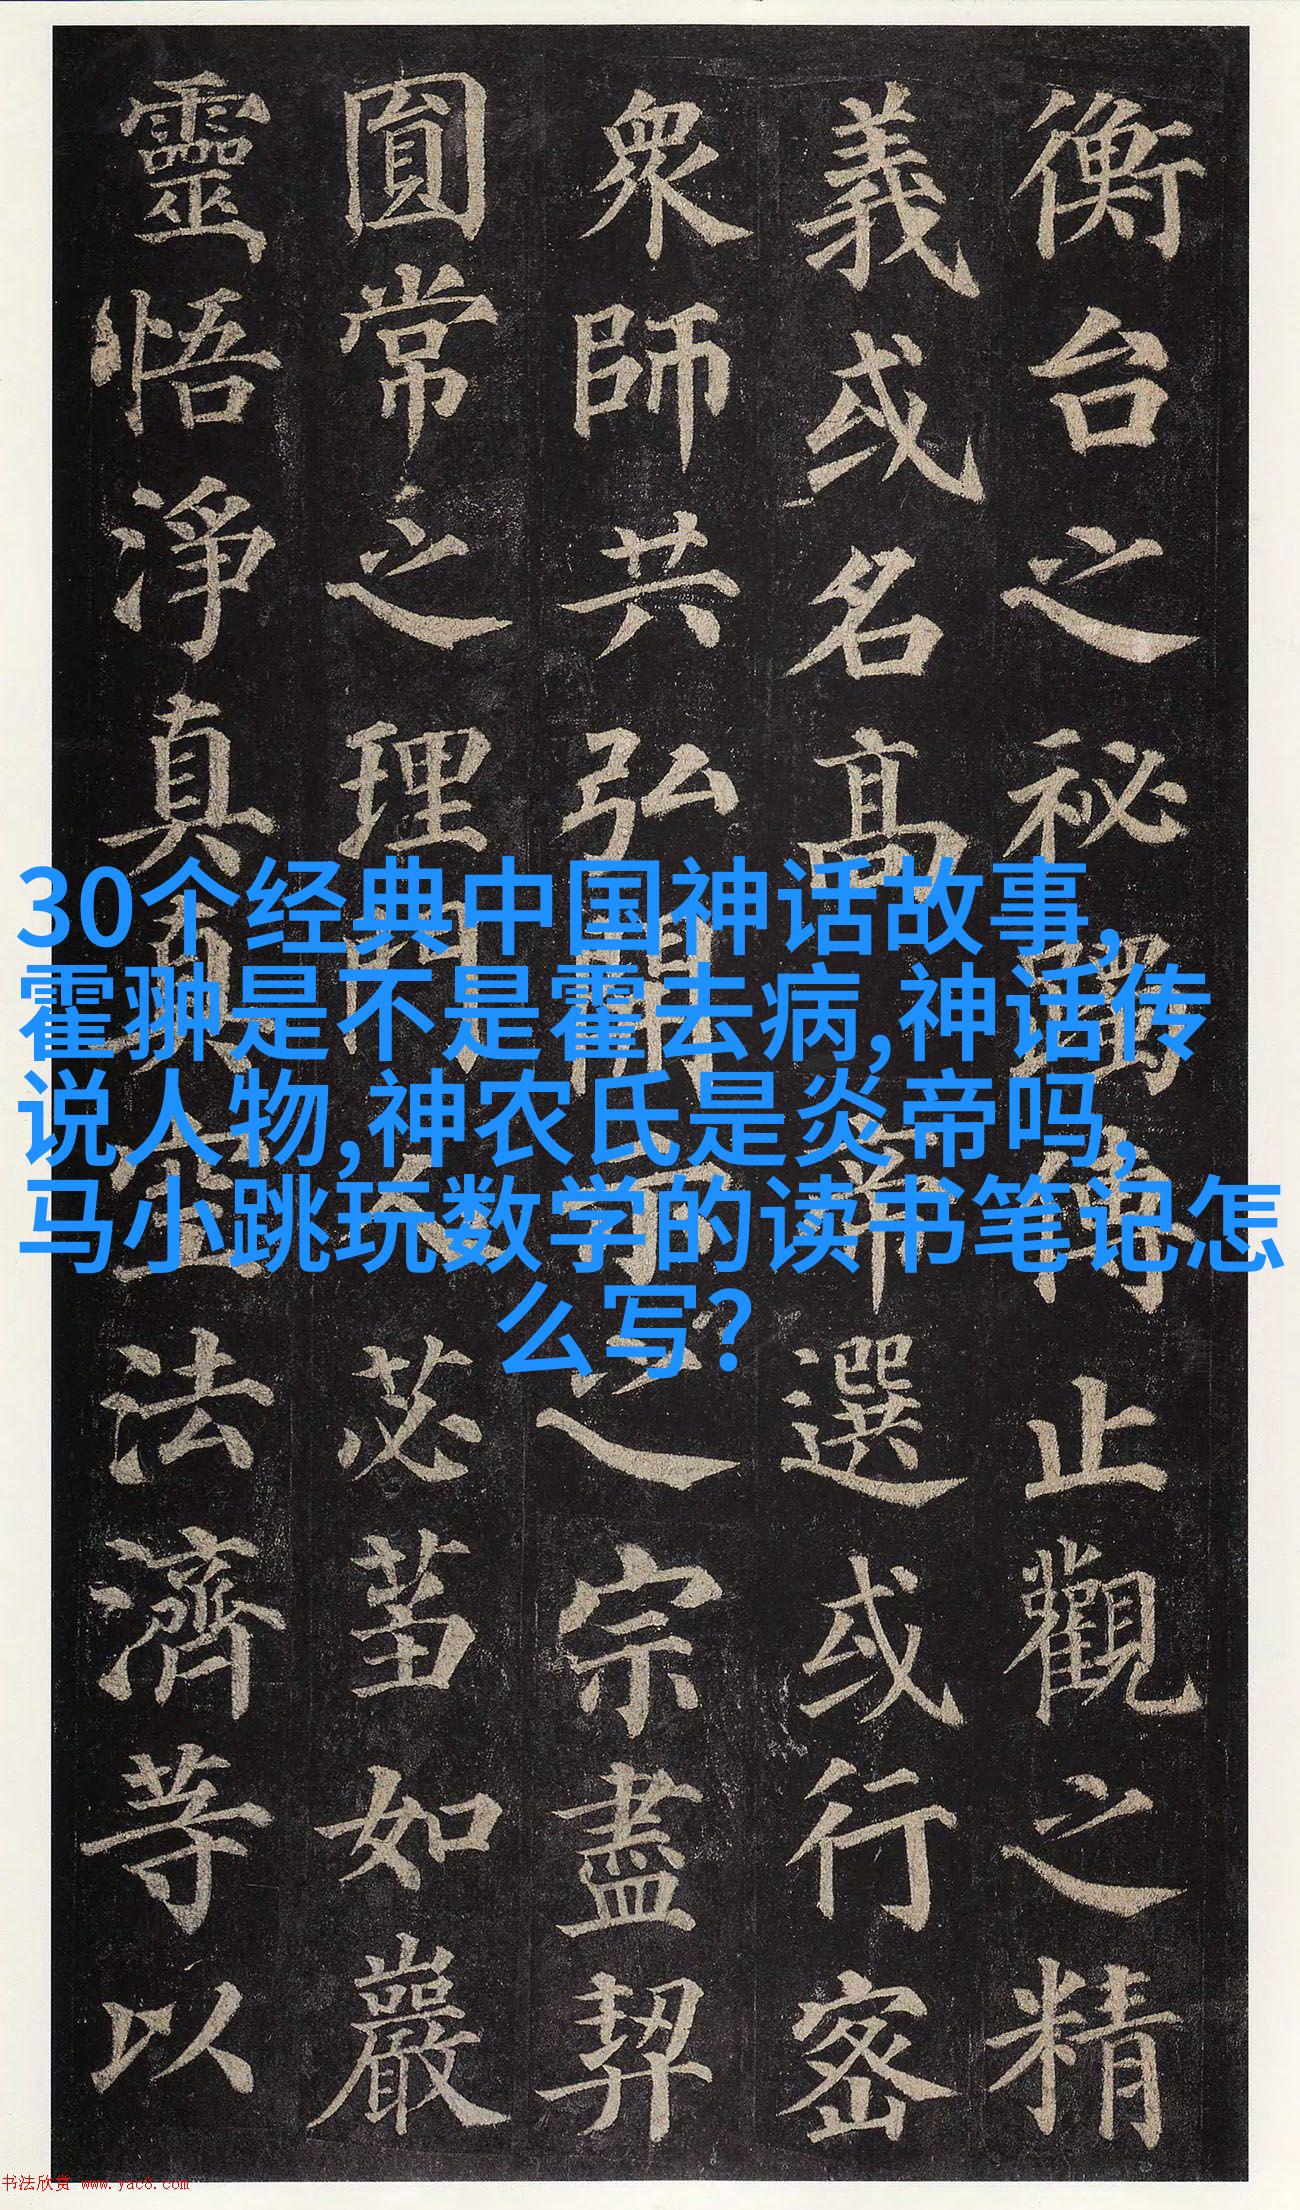 衡台之秘躅傳止觀之精
義或名高帝選或行密
衆師共弘開示之宗盡契
圓常之理門人苾芻如巖
靈悟淨真真空法濟等以
30个经典中国神话故事,
霍翀是不是霍去病,神话传
说人物,神农氏是炎帝吗,
马小跳玩数学的读书笔记怎
么写?
书法欣赏 www.yac8.com